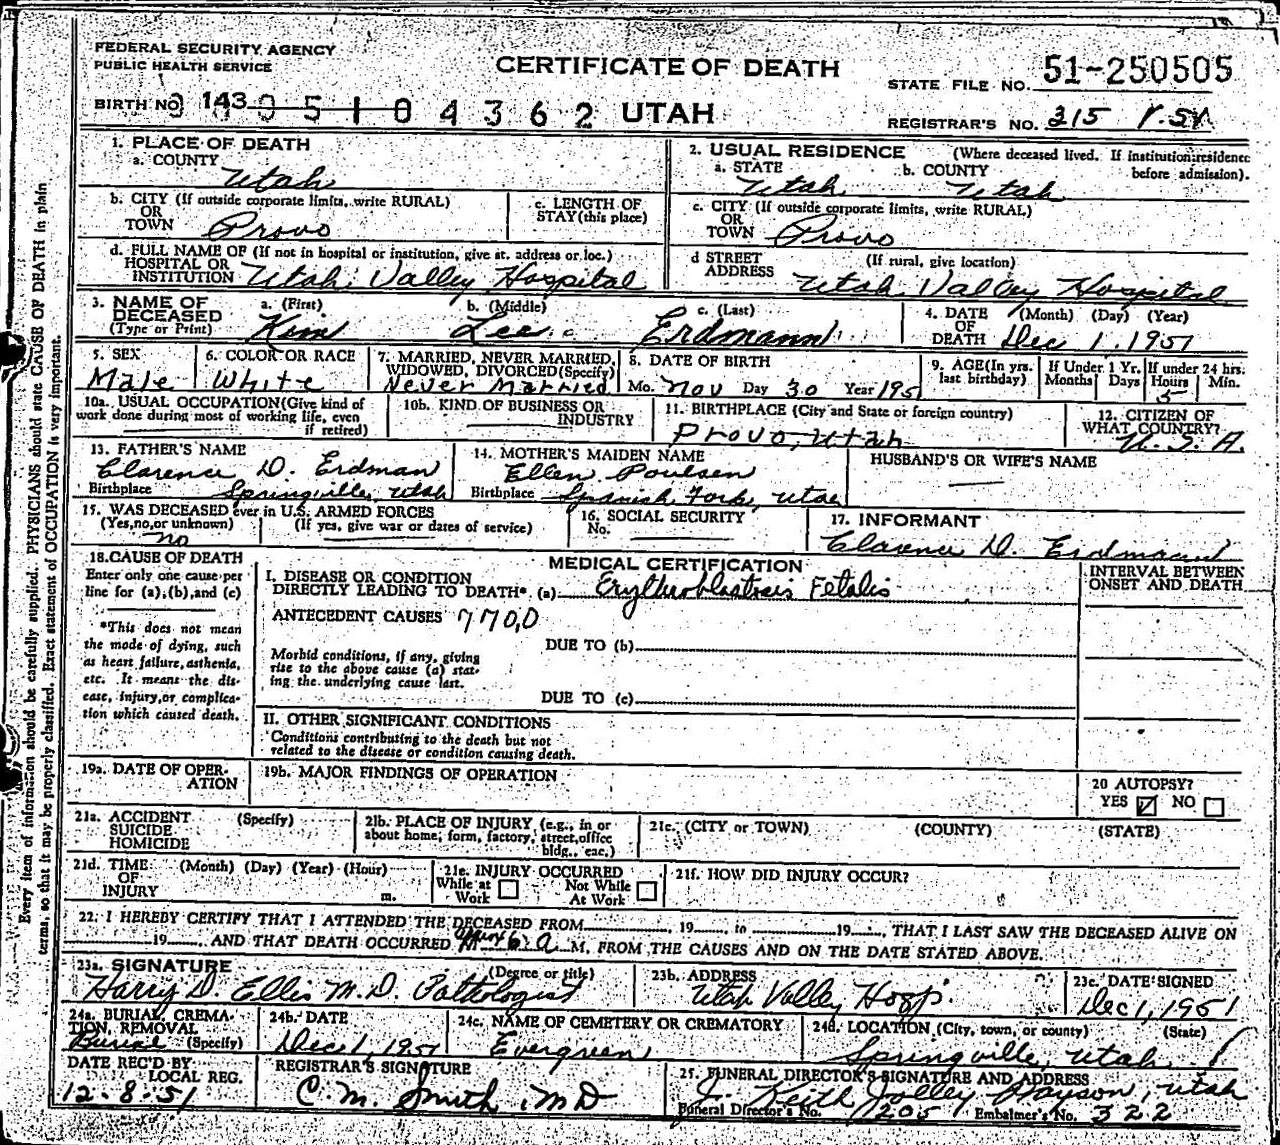 FEDERAL SECURITY AGENCY
PUBLIC HEALTH SERVICE
CERTIFICATE OF DEATH
STATE FILE NO. 51-250505
BIRTH NO. 143 05104362 UTAH
REGISTRAR'S NO. 315
1. PLACE OF DEATH
a. COUNTY Utah
2. USUAL RESIDENCE (Where deceased lived. If institution:residence before admission).
a. STATE Utah b. COUNTY Utah
b. CITY (If outside corporate limits, write RURAL) OR TOWN Provo
c. LENGTH OF STAY (this place)
c. CITY (If outside corporate limits, write RURAL) OR TOWN Provo
d. FULL NAME OF (If not in hospital or institution, give st. address or loc.) HOSPITAL OR INSTITUTION Utah Valley Hospital
d STREET ADDRESS (If rural, give location) Utah Valley Hospital
3. NAME OF DECEASED (Type or Print) a. (First) Kim b. (Middle) Lee c. (Last) Erdmann
4. DATE OF DEATH (Month) (Day) (Year) Dec 1, 1951
5. SEX Male
6. COLOR OR RACE White
7. MARRIED, NEVER MARRIED, WIDOWED, DIVORCED(Specify) Never Married
8. DATE OF BIRTH Mo. Nov Day 30 Year 1951
9. AGE(In yrs. last birthday)
If Under 1 Yr. Months Days
If under 24 hrs. Hours 5 Min.
10a. USUAL OCCUPATION(Give kind of work done during most of working life, even if retired)
10b. KIND OF BUSINESS OR INDUSTRY
11. BIRTHPLACE (City and State or foreign country) Provo, Utah
12. CITIZEN OF WHAT COUNTRY? U. S. A.
13. FATHER'S NAME Clarence D. Erdman
Birthplace Springville, Utah
14. MOTHER'S MAIDEN NAME Ellen Poulsen
Birthplace Spanish Fork, Utah
HUSBAND'S OR WIFE'S NAME
15. WAS DECEASED ever in U.S. ARMED FORCES
(Yes,no,or unknown) no (If yes, give war or dates of service)
16. SOCIAL SECURITY No.
17. INFORMANT Clarence D. Erdmann
18. CAUSE OF DEATH
Enter only one cause per line for (a),(b),and (c)
*This does not mean the mode of dying, such as heart failure, asthenia, etc. It means the disease, injury, or complication which caused death.
MEDICAL CERTIFICATION
INTERVAL BETWEEN ONSET AND DEATH
I. DISEASE OR CONDITION DIRECTLY LEADING TO DEATH* (a) Erythroblastosis Fetalis
ANTECEDENT CAUSES 770,0
DUE TO (b)
Morbid conditions, if any, giving rise to the above cause (a) stating the underlying cause last.
DUE TO (c)
II. OTHER SIGNIFICANT CONDITIONS
Conditions contributing to the death but not related to the disease or condition causing death.
19a. DATE OF OPERATION
19b. MAJOR FINDINGS OF OPERATION
20 AUTOPSY? YES NO
21a. ACCIDENT SUICIDE HOMICIDE (Specify)
21b. PLACE OF INJURY (e.g., in or about home, form, factory, street,office bldg., eac.)
21c. (CITY or TOWN) (COUNTY) (STATE)
21d. TIME OF INJURY (Month) (Day) (Year) (Hour) m.
21e. INJURY OCCURRED While at Work Not While At Work
21f. HOW DID INJURY OCCUR?
22. I HEREBY CERTIFY THAT I ATTENDED THE DECEASED FROM 19 , to 19 , THAT I LAST SAW THE DECEASED ALIVE ON
19 , AND THAT DEATH OCCURRED 6 a M, FROM THE CAUSES AND ON THE DATE STATED ABOVE.
23a. SIGNATURE (Degree or title) Harry D. Ellis M.D. Pathologist
23b. ADDRESS Utah Valley Hosp.
23c. DATE SIGNED Dec 1, 1951
24a. BURIAL, CREMATION, REMOVAL (Specify) Burial
24b. DATE Dec 1, 1951
24c. NAME OF CEMETERY OR CREMATORY Evergreen
24d. LOCATION (City, town, or county) (State) Springville, Utah
DATE REC'D BY LOCAL REG. 12-8-51
REGISTRAR'S SIGNATURE C. M. Smith, MD
25. FUNERAL DIRECTOR'S SIGNATURE AND ADDRESS J. Keith Jolley Payson, Utah
Funeral Director's No. 1205 Embalmer's No. 322
Every item of information should be carefully supplied. PHYSICIANS should state CAUSE OF DEATH in plain
terms, so that it may be properly classified. Exact statement of OCCUPATION is very important.